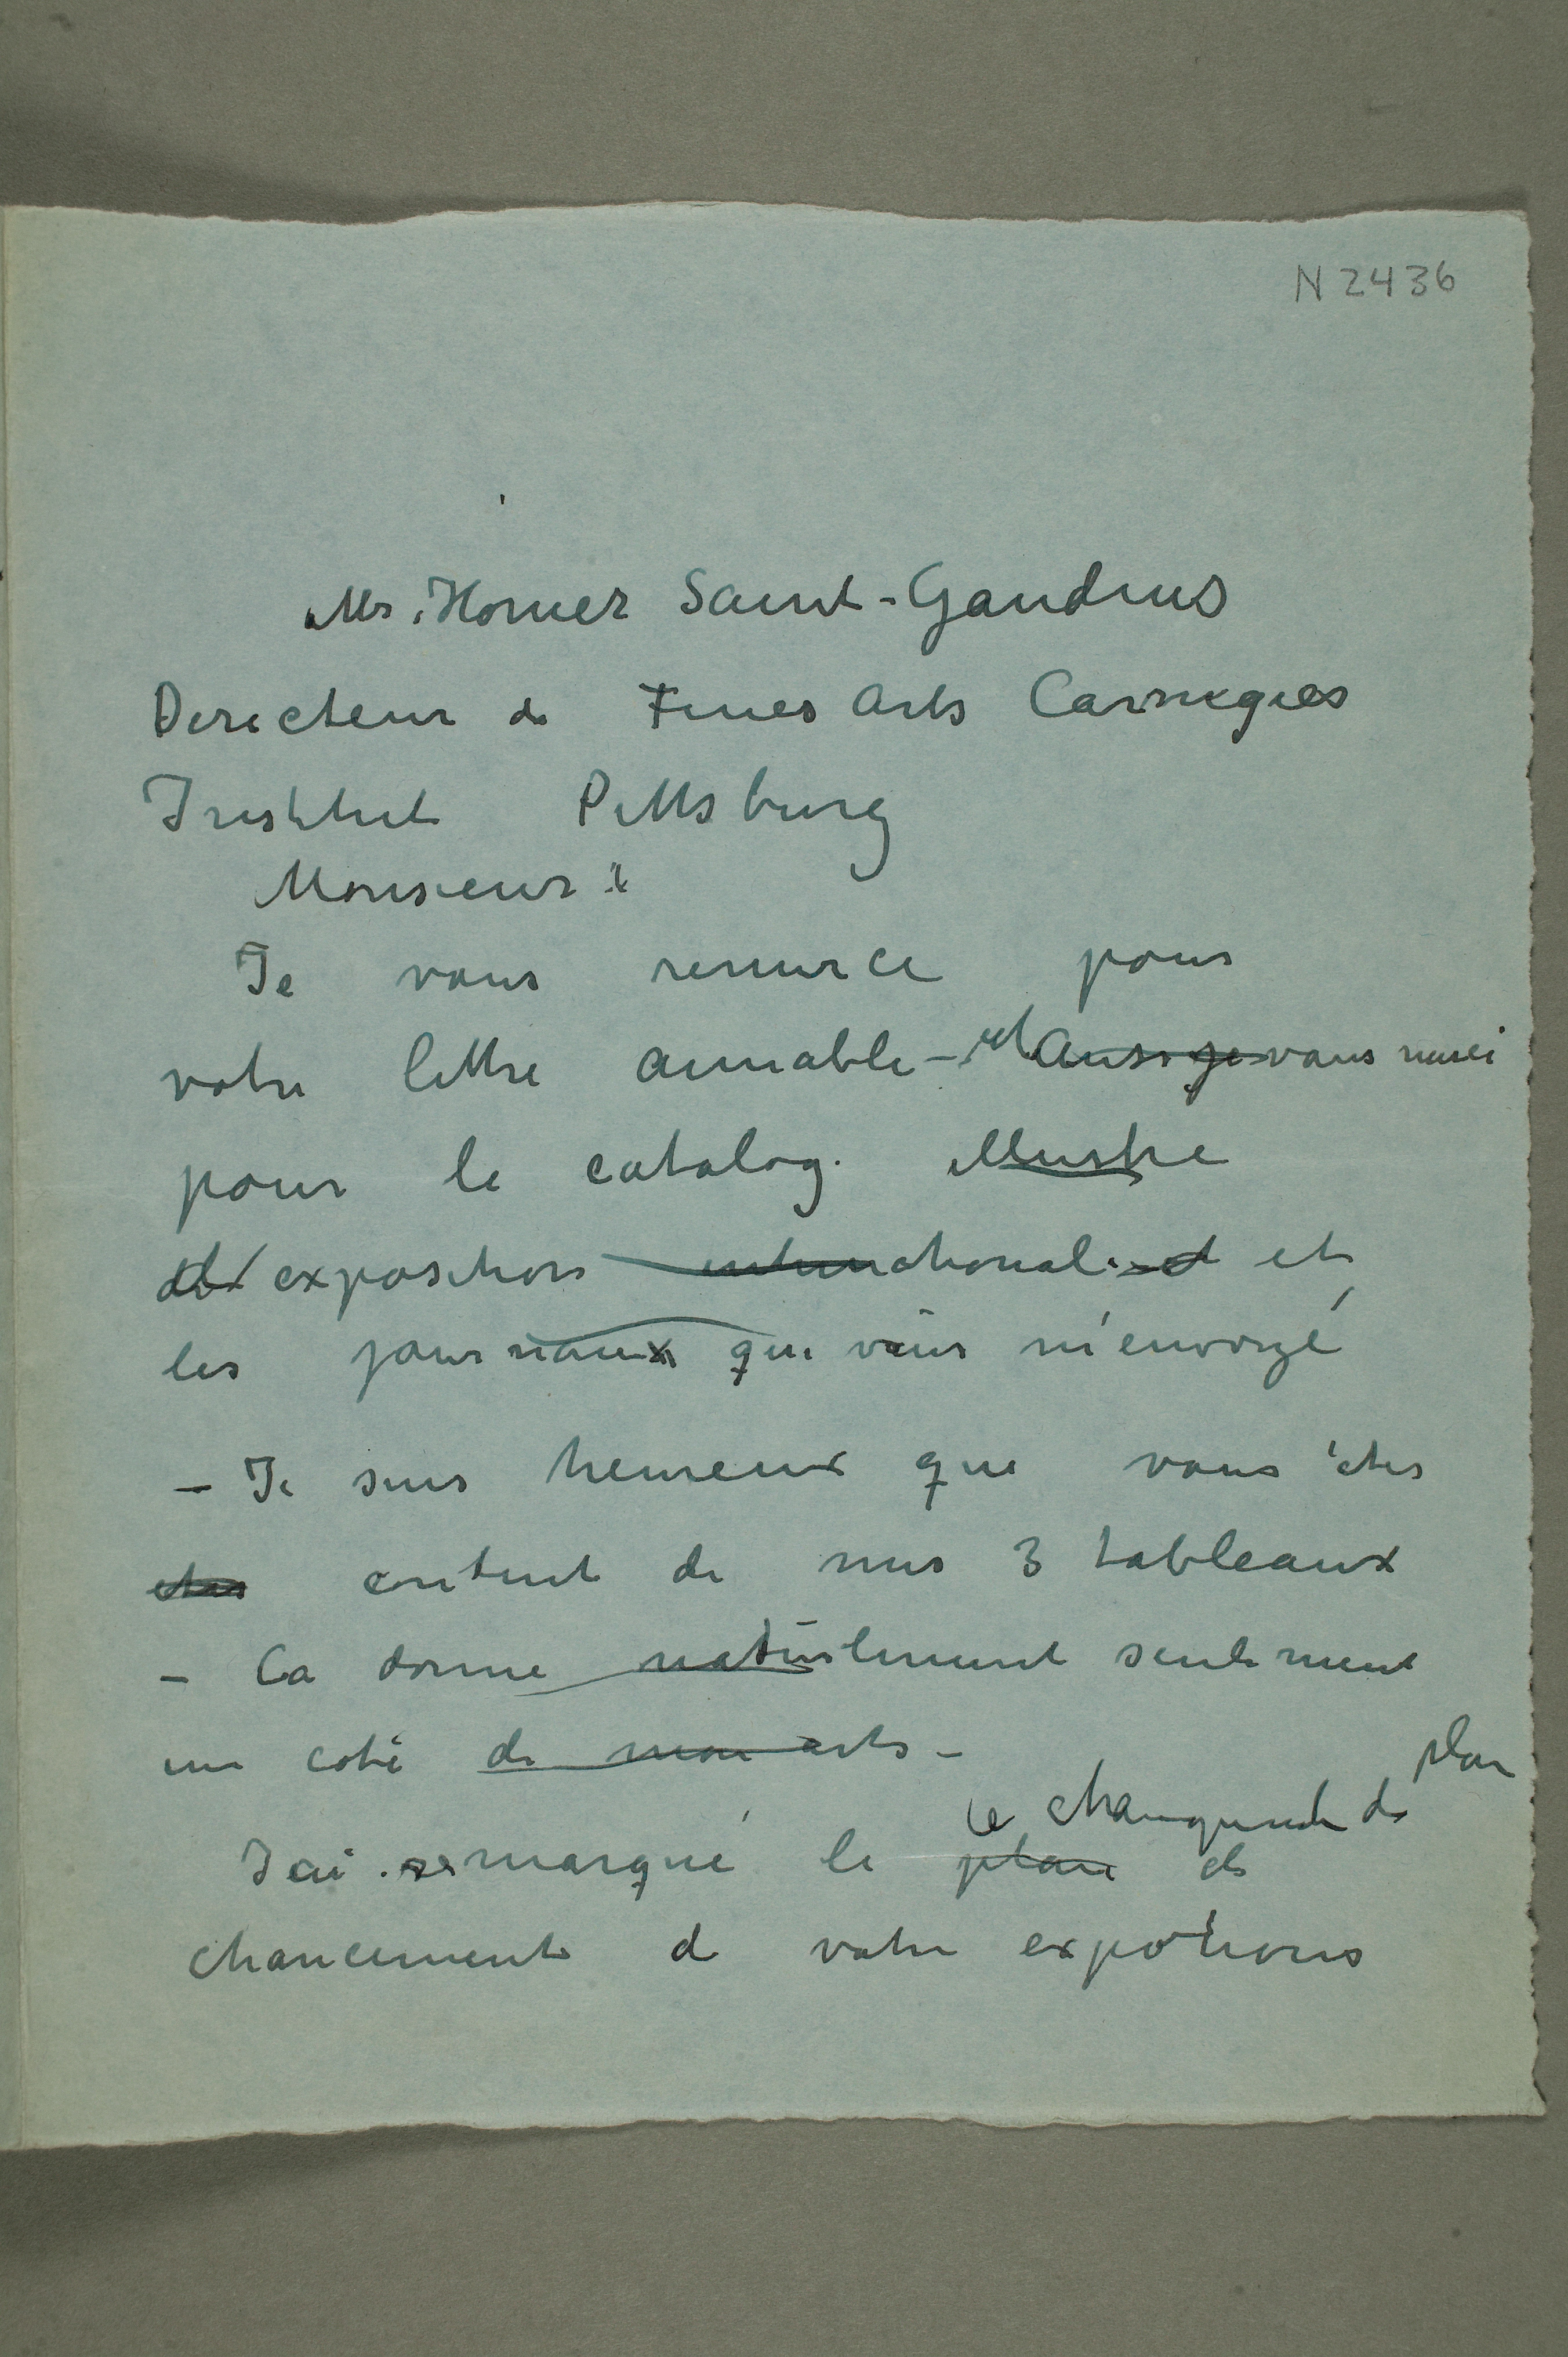 N 2436
Mr. Homer Saint-Gaudens
Directeur de Fines Arts Carnegies
Institut Pittsburg
Monsieur!
Je vous remerce pour
votre lettre aimable - et Aussi je vous merci
pour le catalog. illustre
de exposition international. et et
les journaux que vous m'envoyé
- Je suis heureux que vous êtes
etes content de mes 3 tableaux
- Ca donne naturlement seulement
un coté de mon arts -
le changement de plan
J'ai remarqué le plan de
chancement de votre expotions